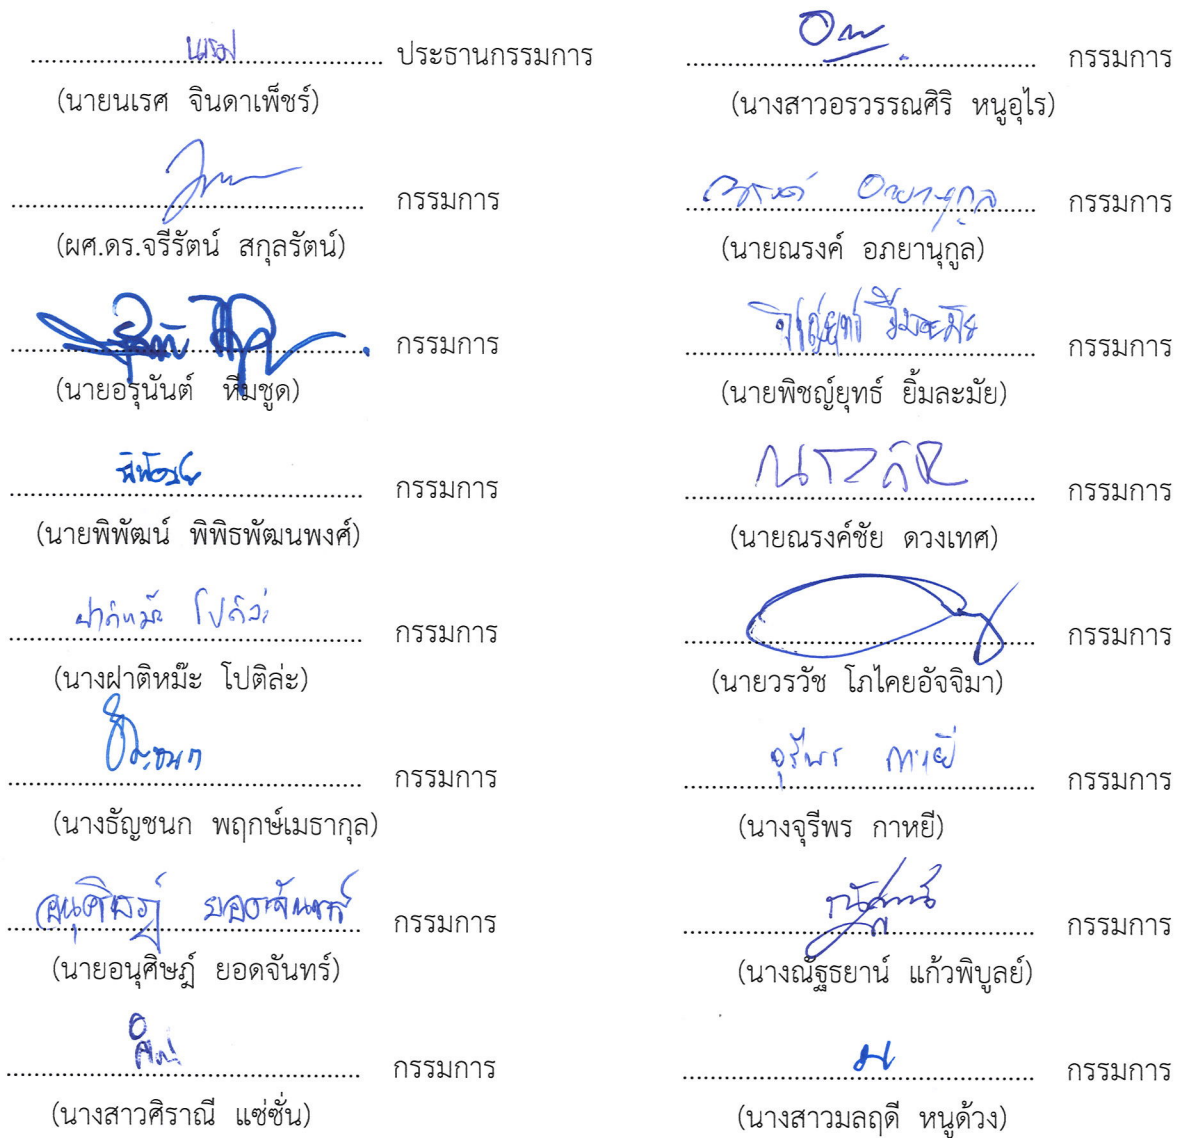 นเรศ
........................................ ประธานกรรมการ
(นายนเรศ จินดาเพ็ชร์)
........................................ กรรมการ
(ผศ.ดร.จรีรัตน์ สกุลรัตน์)
........................................ กรรมการ
(นายอรุนันต์ หีมชูด)
พิพัฒน์
........................................ กรรมการ
(นายพิพัฒน์ พิพิธพัฒนพงศ์)
ฝาติหม๊ะ โปติล่ะ
........................................ กรรมการ
(นางฝาติหม๊ะ โปติล่ะ)
........................................ กรรมการ
(นางธัญชนก พฤกษ์เมธากุล)
อนุศิษฎ์ ยอดจันทร์
........................................ กรรมการ
(นายอนุศิษฎ์ ยอดจันทร์)
........................................ กรรมการ
(นางสาวศิราณี แซ่ซั่น)
........................................ กรรมการ
(นางสาวอรวรรณศิริ หนูอุไร)
ณรงค์ อภยานุกูล
........................................ กรรมการ
(นายณรงค์ อภยานุกูล)
พิชญ์ยุทธ์ ยิ้มละมัย
........................................ กรรมการ
(นายพิชญ์ยุทธ์ ยิ้มละมัย)
........................................ กรรมการ
(นายณรงค์ชัย ดวงเทศ)
........................................ กรรมการ
(นายวรวัช โภไคยอัจจิมา)
จุรีพร กาหยี
........................................ กรรมการ
(นางจุรีพร กาหยี)
........................................ กรรมการ
(นางณัฐธยาน์ แก้วพิบูลย์)
........................................ กรรมการ
(นางสาวมลฤดี หนูด้วง)